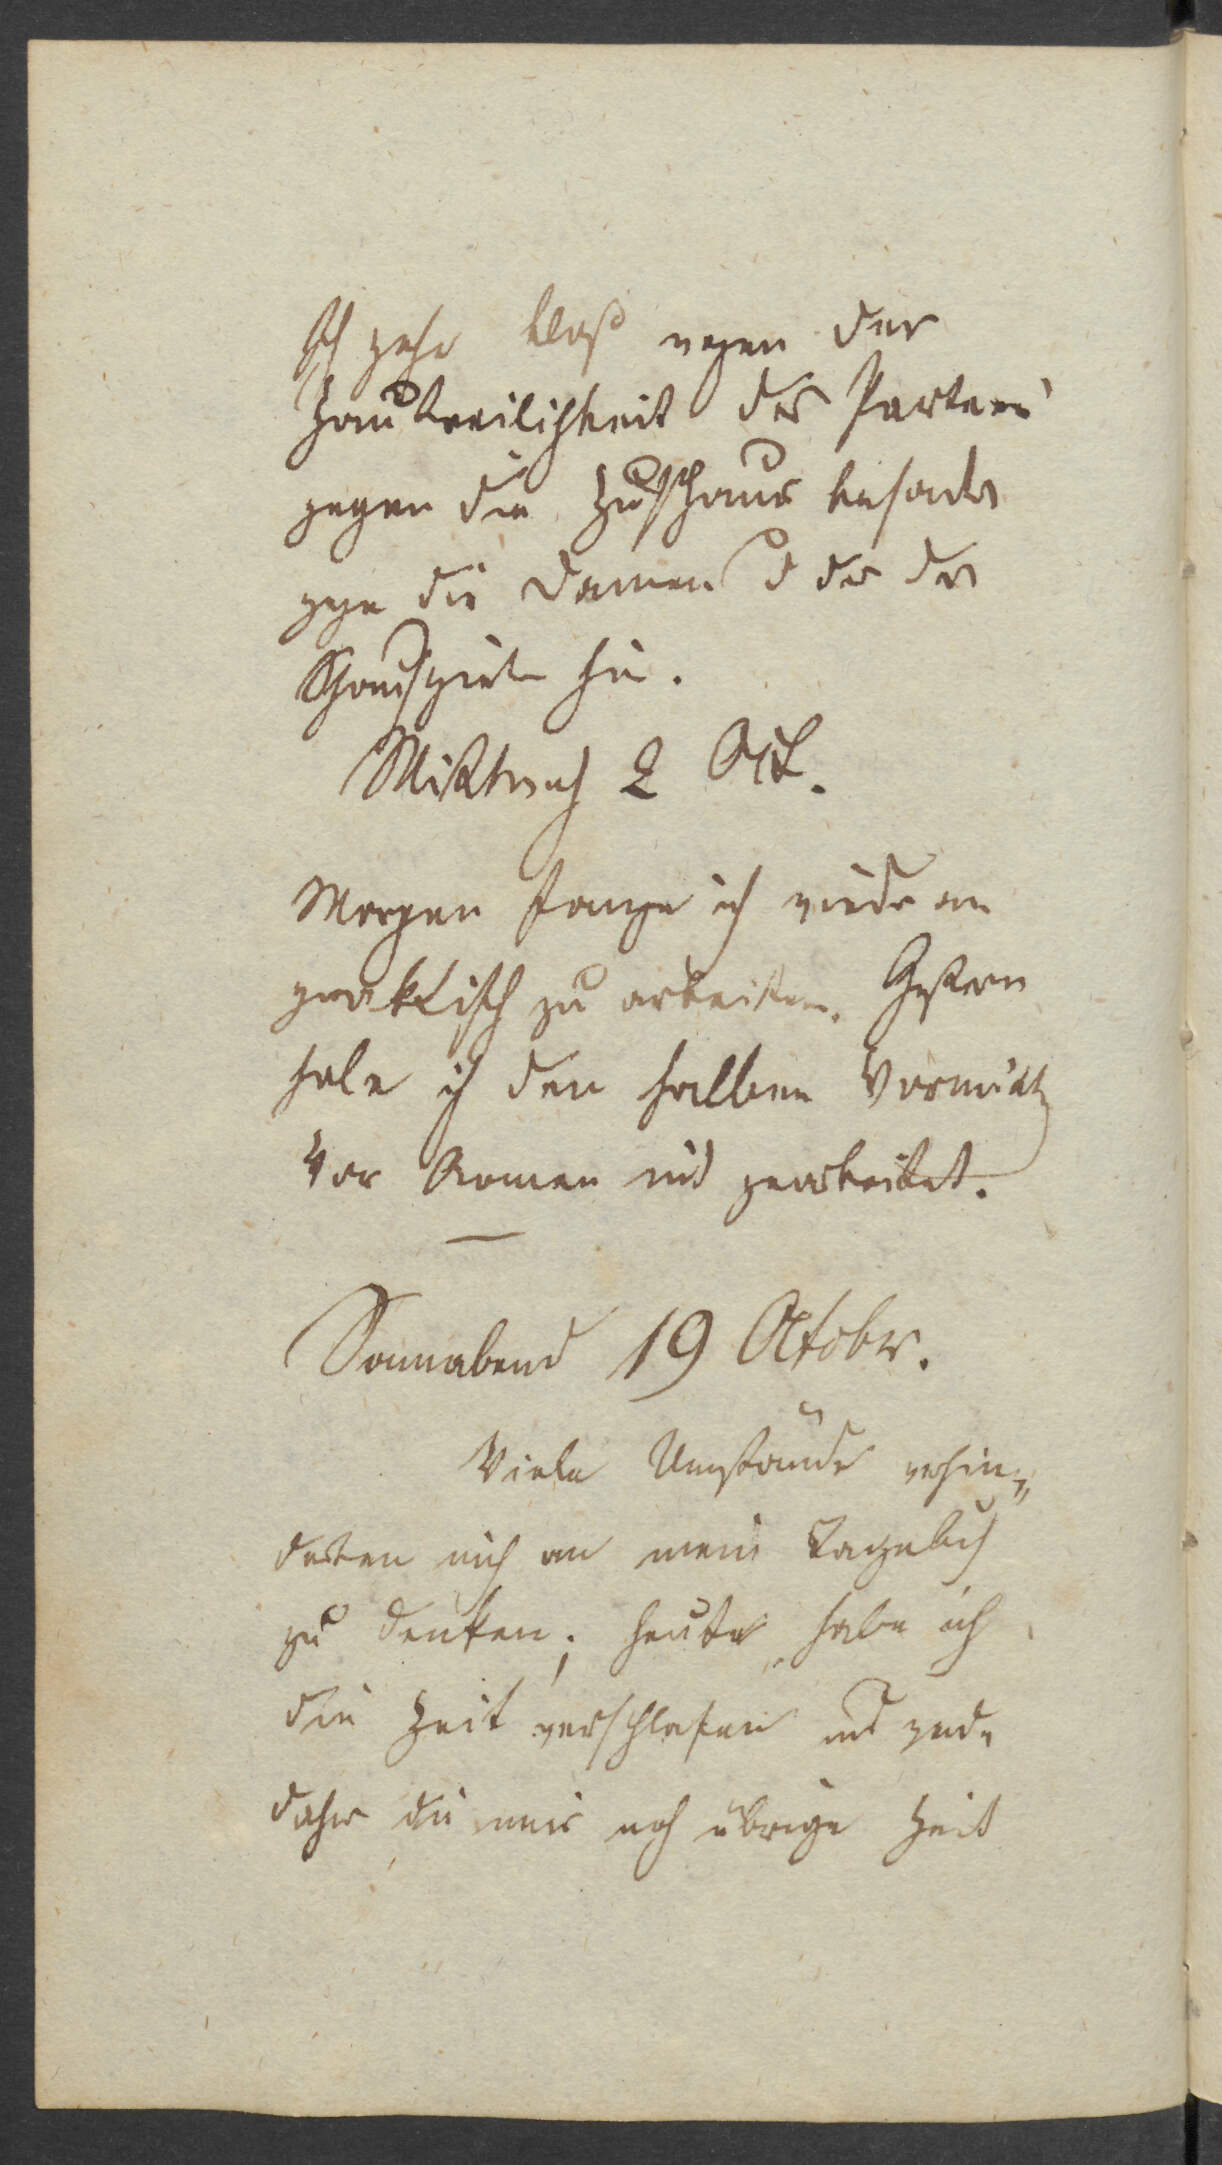 Ich gehe bloß wegen der
Zautreilichkeit der Parterre
gegen die Zuschauer besonders
gegen die Damen u der der
Schauspieler hin.
Mittwoch 2 Okt.
Morgen fange ich wieder an
praktisch zu arbeiten. Gestern
habe ich den halben Vormittg
vor Armen nid gearbeitet.
Sonnabend 19 Octobr.
Viele Umstände verhin„
derten mich an mein Tagebuch
zu denken; heute habe ich
die Zeit verschlafen und
daher die mir noch übrige Zeit